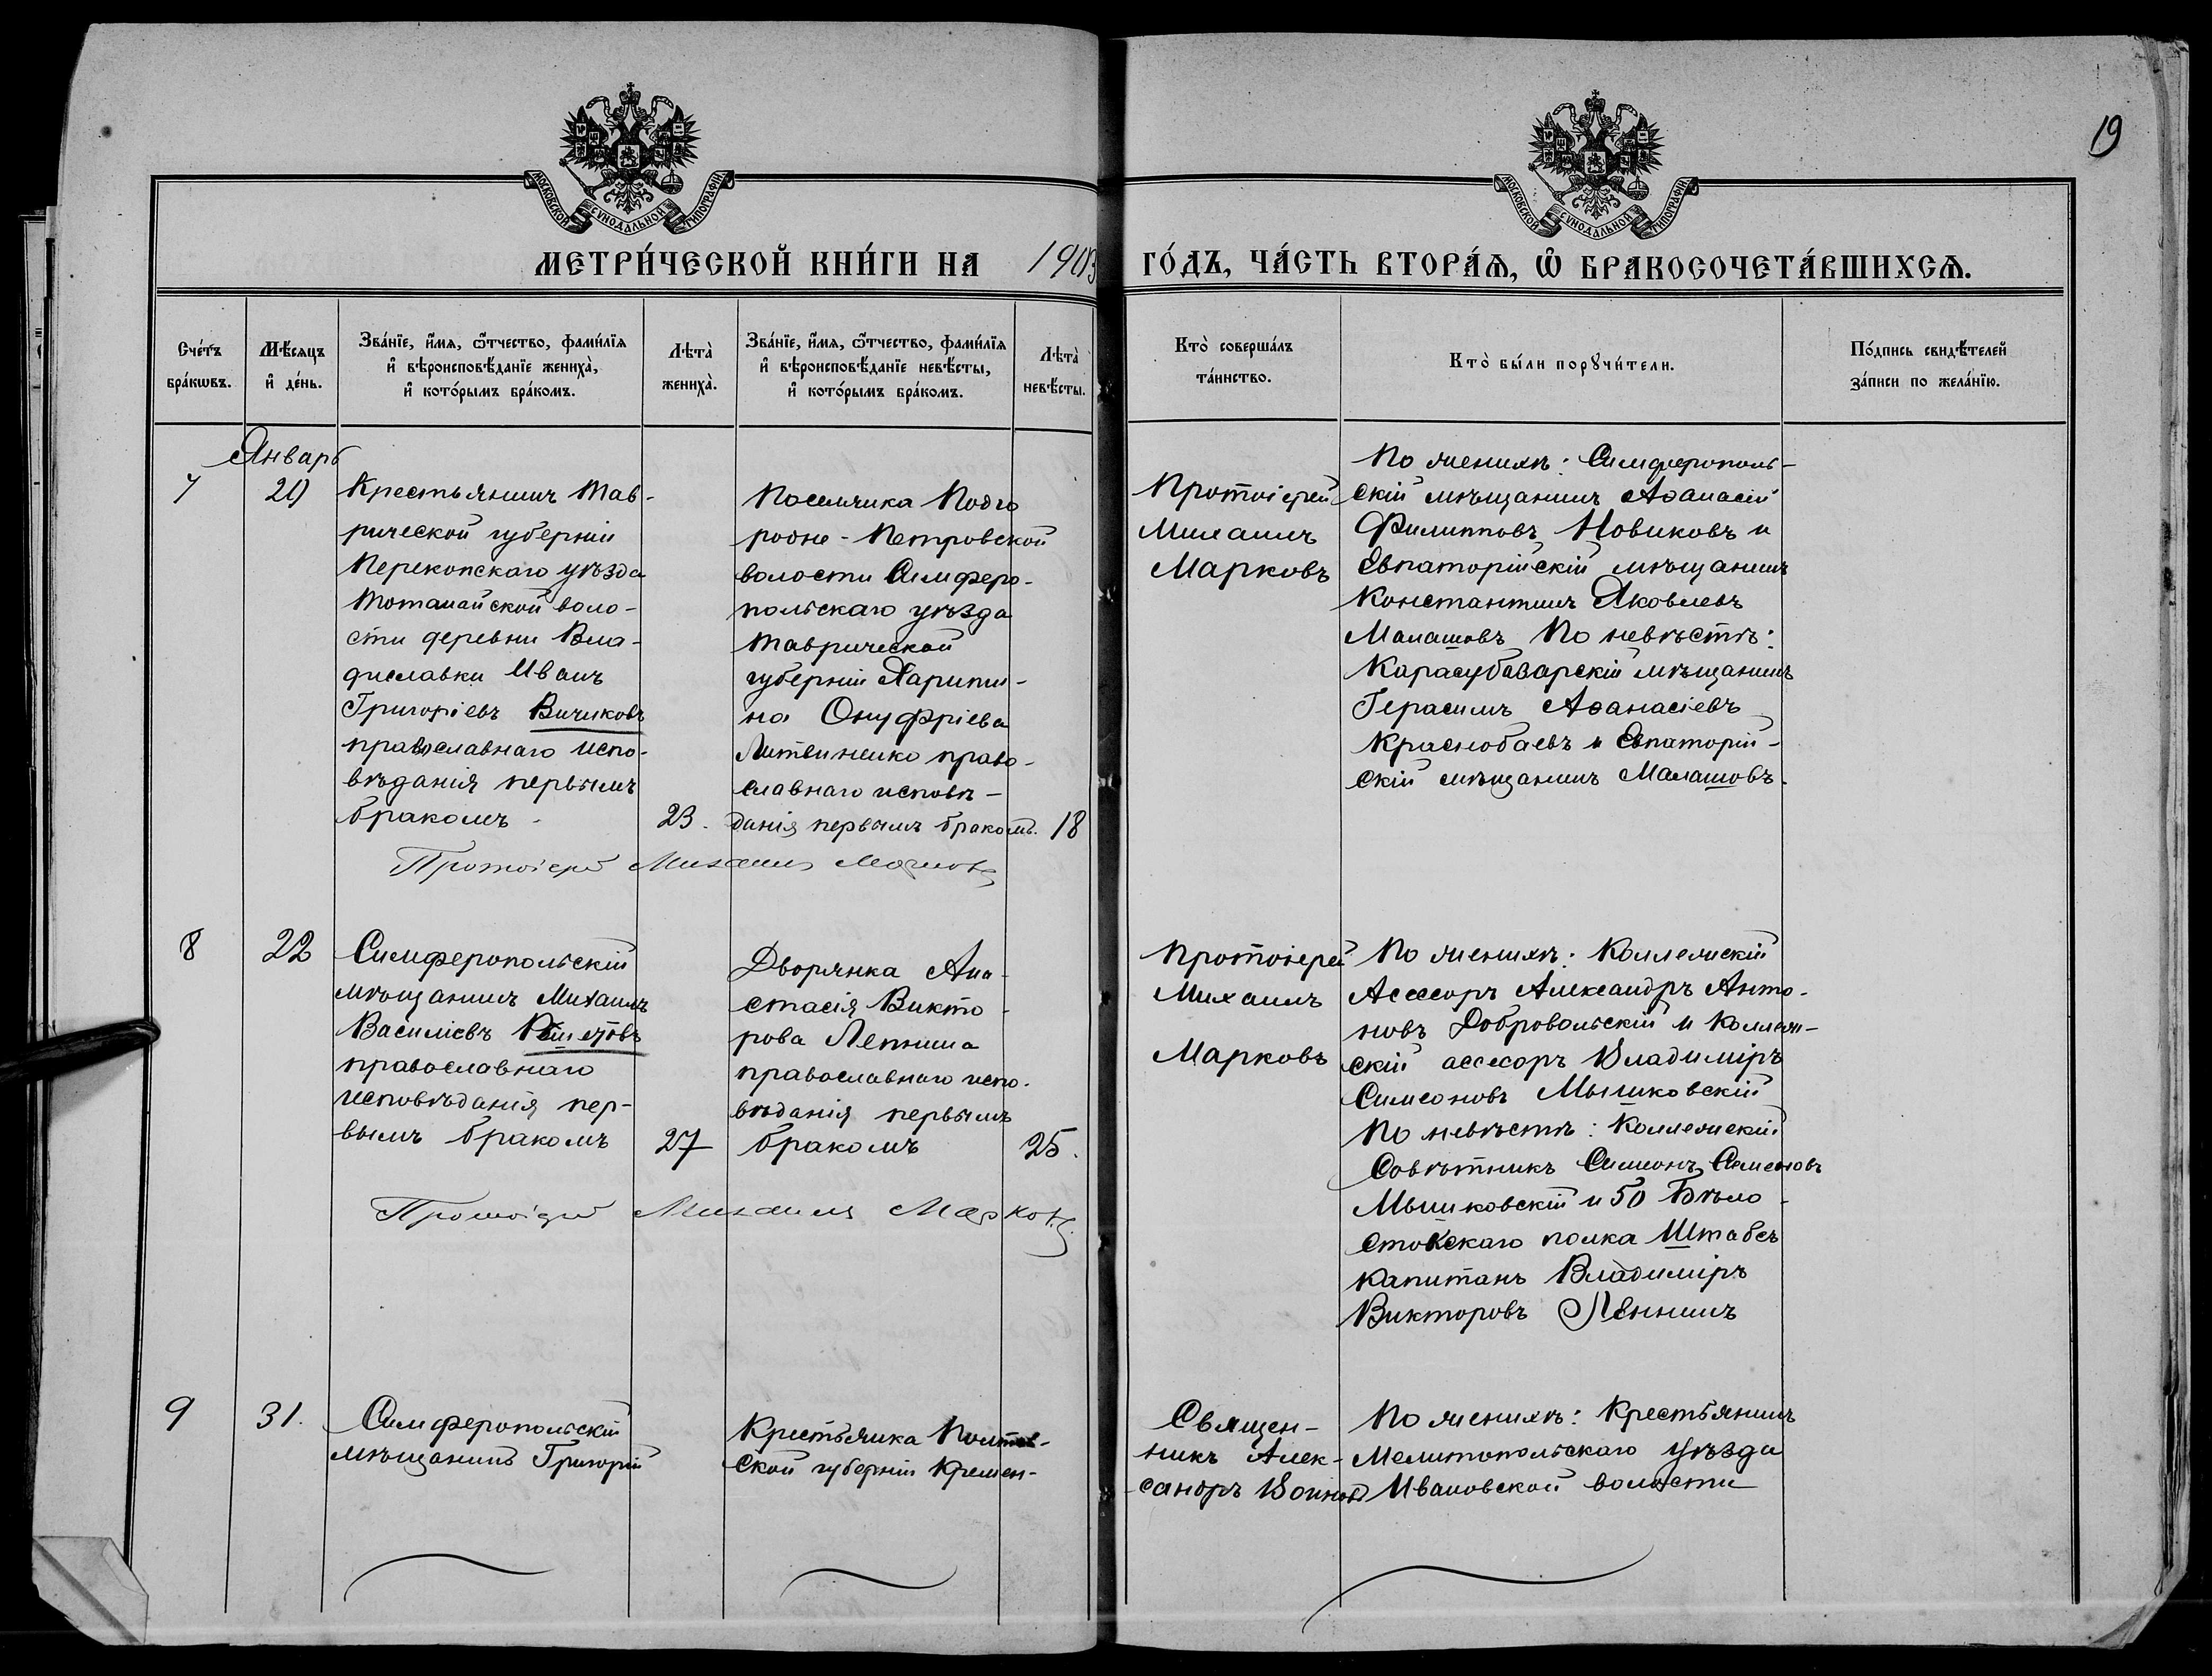 19
МОСКОВСКОЙ СѴНОДАЛЬНОЙ ТИПОГРАФІИ
МОСКОВСКОЙ СѴНОДАЛЬНОЙ ТИПОГРАФІИ
МЕТРИ́ЧЕСКОЙ КНИ́ГИ НА 1903 ГО́ДЪ, ЧА́СТЬ ВТОРА́Ѧ, Ѽ БРАКОСОЧЕТА́ВШИХСѦ.
Сче́тъ
бра́кѡвъ.
Мѣ́сѧцъ
и҆ де́нь.
Зва́нїе, и҆́мѧ, ѻ҆́тчество, фами́лїѧ
и҆ вѣроисповѣ́данїе жениха̀,
и҆ кото́рымъ бра́комъ.
Лѣта̀
жениха̀.
Зва́нїе, и҆́мѧ, ѻ҆́тчество, фами́лїѧ
и҆ вѣроисповѣ́данїе невѣ́сты,
и҆ кото́рымъ бра́комъ.
Лѣта̀
невѣ́сты.
Кто̀ соверша́лъ
та́инство.
Кто̀ бы́ли порꙋчи́тели.
По́дпись свидѣ́телей
за́писи по жела́нїю.
Январь
7
20
Крестьянинъ Тав-
рической губерніи
Перекопскаго уѣзда
Тотанайской воло-
сти деревни Вла-
диславки Иванъ
Григоріевъ Вичиковъ
православнаго испо-
вѣданія первымъ
бракомъ
23.
Поселянка Подго
родне-Петровской
волости Симферо-
польскаго уѣзда
Таврической
губерніи Харити-
на Онуфріева
Литвиненко право-
славнаго исповѣ-
данія первымъ бракомъ.
18
Протоіерей
Михаилъ
Марковъ
По женихѣ: Симферополь-
скій мѣщанинъ Аѳанасій
Филипповъ Новиковъ и
Евпаторійскій мѣщанинъ
Константинъ Яковлевъ
Малашовъ По невѣстѣ:
Карасубазарскій мѣщанинъ
Герасимъ Аѳанасіевъ
Краснобаевъ и Евпаторій-
скій мѣщанинъ Малашовъ.
Протоіерей Михаилъ Марковъ
8
22
Симферопольскій
мѣщанинъ Михаилъ
Василіевъ Решетовъ
православнаго
исповѣданія пер-
вымъ бракомъ
27
Дворянка Ана-
стасія Викто-
рова Лепнина
православнаго испо-
вѣданія первымъ
бракомъ
25.
Протоіерей
Михаилъ
Марковъ
По женихѣ: Коллежскій
Ассесоръ Александръ Анто-
новъ Добровольскій и Коллеж-
скій ассесоръ Владиміръ
Симеоновъ Мышковскій
По невѣстѣ: Коллежскій
Совѣтникъ Симеонъ Семеновъ
Мышковскій и 50 Бѣло-
стокскаго полка Штабсъ
Капитанъ Владиміръ
Викторовъ Лепнинъ
Протоіерей Михаилъ Марковъ
9
31.
Симферопольскій
мѣщанинъ Григорій
Крестьянка Полтав-
ской губерніи Кремен-
Священ-
никъ Алек-
сандръ Войновъ
По женихѣ: Крестьянинъ
Мелитопольскаго уѣзда
Ивановской волости